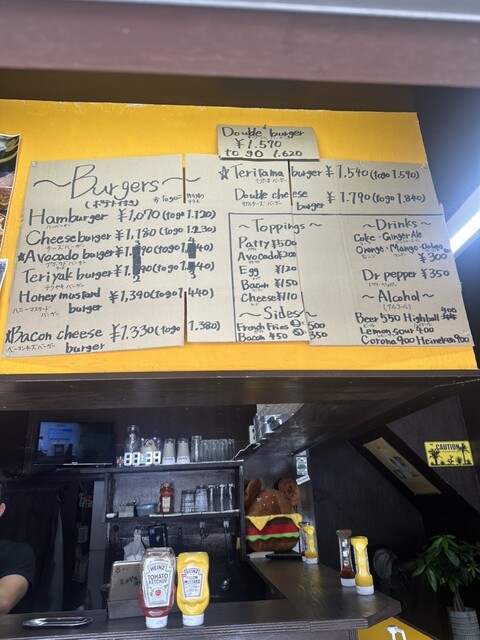 Double burger
¥1.570
to go 1.620
~Burgers~
(ポテト付き)
Hamburger ¥1,070 (to go 1.120)
ハンバーガー
Cheeseburger ¥1,180 (to go 1.230)
チーズバーガー
☆Avocado burger
アボカドバーガー
Teriyaki burger
テリヤキバーガー
Honey mustard burger ¥1,390 (to go 1 440)
ハニーマスタードバーガー
☆Bacon cheese burger ¥1.330 (to go 1.380)
ベーコンチーズバーガー
☆Teritama burger ¥1.540 (to go 1.590)
Double cheese burger ¥1.790 (to go 1.840)
~Toppings~
Patty ¥500
Avocado ¥200
Egg ¥120
Bacon ¥150
Cheese ¥110
~Sides~
French Fries 500
Bacon 450 350
~Drinks~
Coke・Ginger Ale
Orange・Mango・Oolong
¥300
Dr pepper ¥350
~Alcohol~
(アルコール)
Beer 550 Highball 400
Lemon sour 400
Corona 900 Heineken 900
CAUTION
HEINZ
TOMATO
KETCHUP
HEINZ
YELLOW
MUSTARD